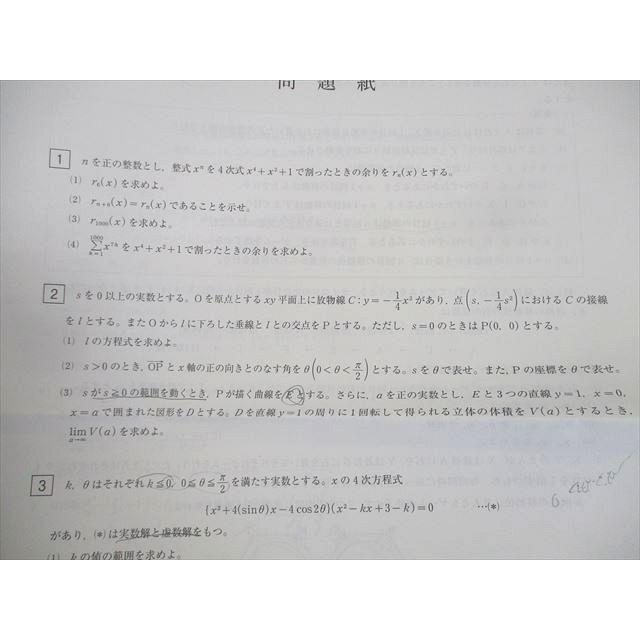 問題紙
1 nを正の整数とし，整式xⁿを4次式x⁴+x²+1で割ったときの余りをrₙ(x)とする。
(1) r₆(x)を求めよ。
(2) rₙ₊₆(x)=rₙ(x)であることを示せ。
(3) r₁₀₀₀(x)を求めよ。
(4) \sum_{k=1}^{1000} x^{7k}をx⁴+x²+1で割ったときの余りを求めよ。
2 sを0以上の実数とする。Oを原点とするxy平面上に放物線C：y=-\frac{1}{4}x²があり，点(s, -\frac{1}{4}s²)におけるCの接線
をlとする。またOからlに下ろした垂線とlとの交点をPとする。ただし，s=0のときはP(0, 0)とする。
(1) lの方程式を求めよ。
(2) s>0のとき，\overrightarrow{OP}とx軸の正の向きとのなす角をθ(0<θ<\frac{π}{2})とする。sをθで表せ。また，Pの座標をθで表せ。
(3) sがs≧0の範囲を動くとき，Pが描く曲線をEとする。さらに，aを正の実数とし，Eと3つの直線y=1，x=0，
x=aで囲まれた図形をDとする。Dを直線y=1の周りに1回転して得られる立体の体積をV(a)とするとき，
\lim_{a→∞} V(a)を求めよ。
3 k，θはそれぞれk≦0，0≦θ≦\frac{π}{2}を満たす実数とする。xの4次方程式
{x²+4(sinθ)x-4cos2θ}(x²-kx+3-k)=0 …(*)
があり，(*)は実数解と虚数解をもつ。
(1) kの値の範囲を求めよ。